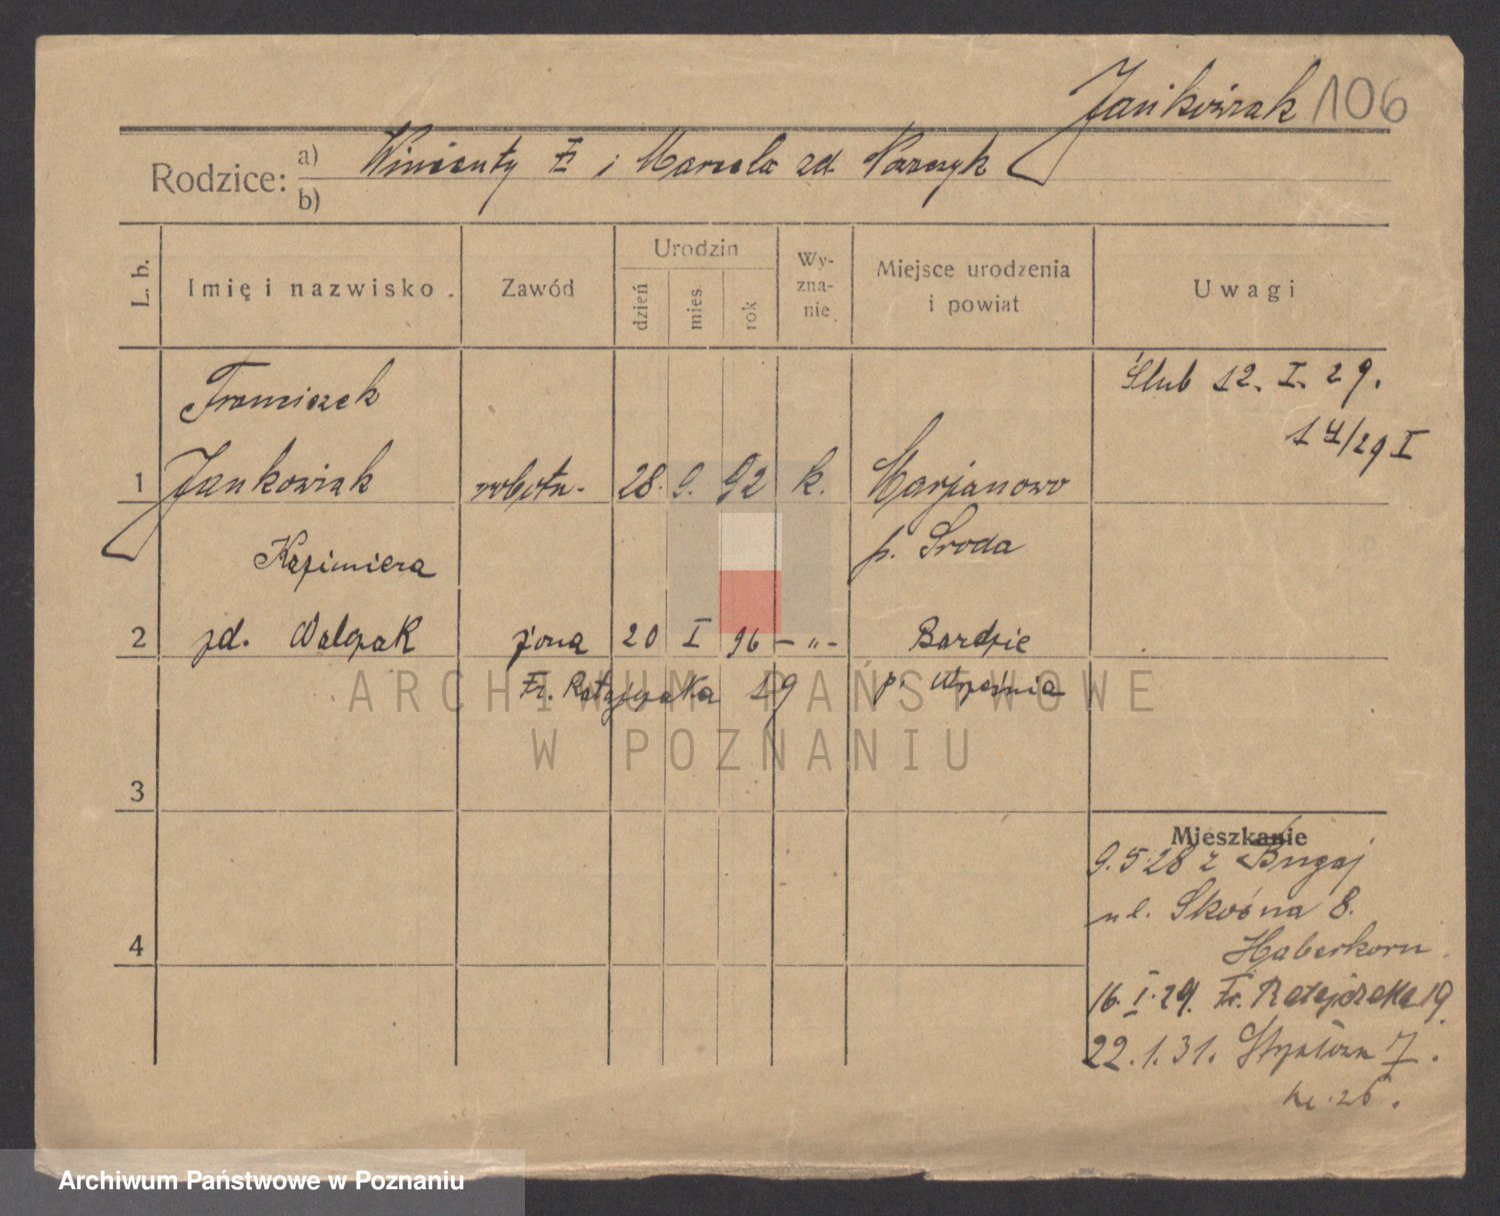 Jankowiak 106
Rodzice: a) Wincenty i Marcela zd.
b)
L. b.
Imię i nazwisko.
Zawód
Urodzin
dzień
mies.
rok
Wy-
zna-
nie
Miejsce urodzenia
i powiat
Uwagi
Franciszek
Ślub 12. I. 29.
14/29 I
1 Jankowiak robotn. 28. 9. 92 k. Marjanowo
Kazimiera
p. Środa
2 zd. Walczak żona 20 I 96 - „ - Bardzie
Fr. Ratajczaka 19 p. Września
ARCHIWUM PAŃSTWOWE
W POZNANIU
3
Mieszkanie
9.5.28 z Bugaj
ul. Skośna 8.
4
Haberkorn.
16. I. 29. Fr. Ratajczaka 19.
22.1.31. 7.
26.
Archiwum Państwowe w Poznaniu